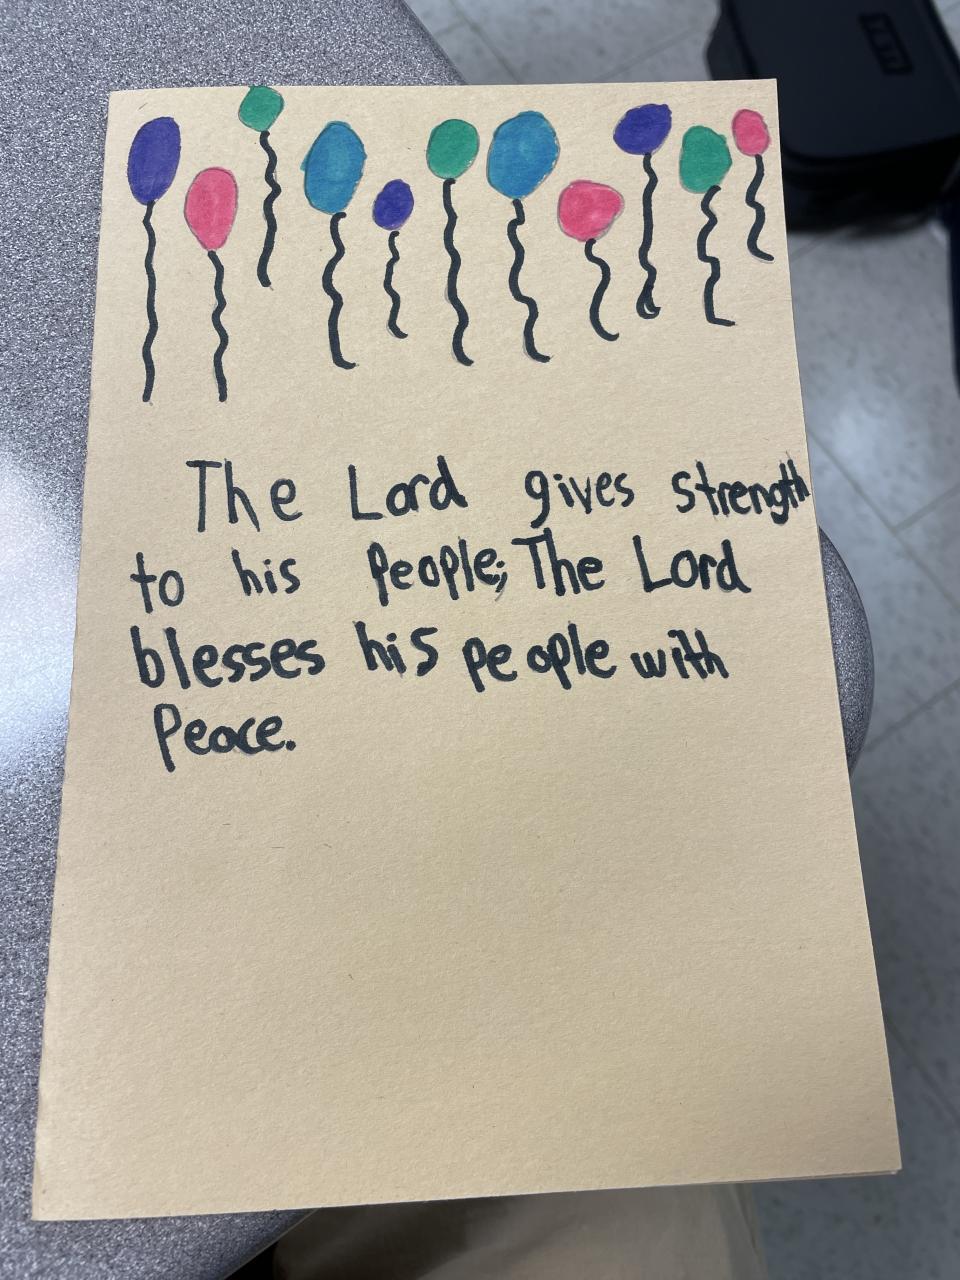 The Lord gives strength
to his People; The Lord
blesses his people with
Peace.
YETI